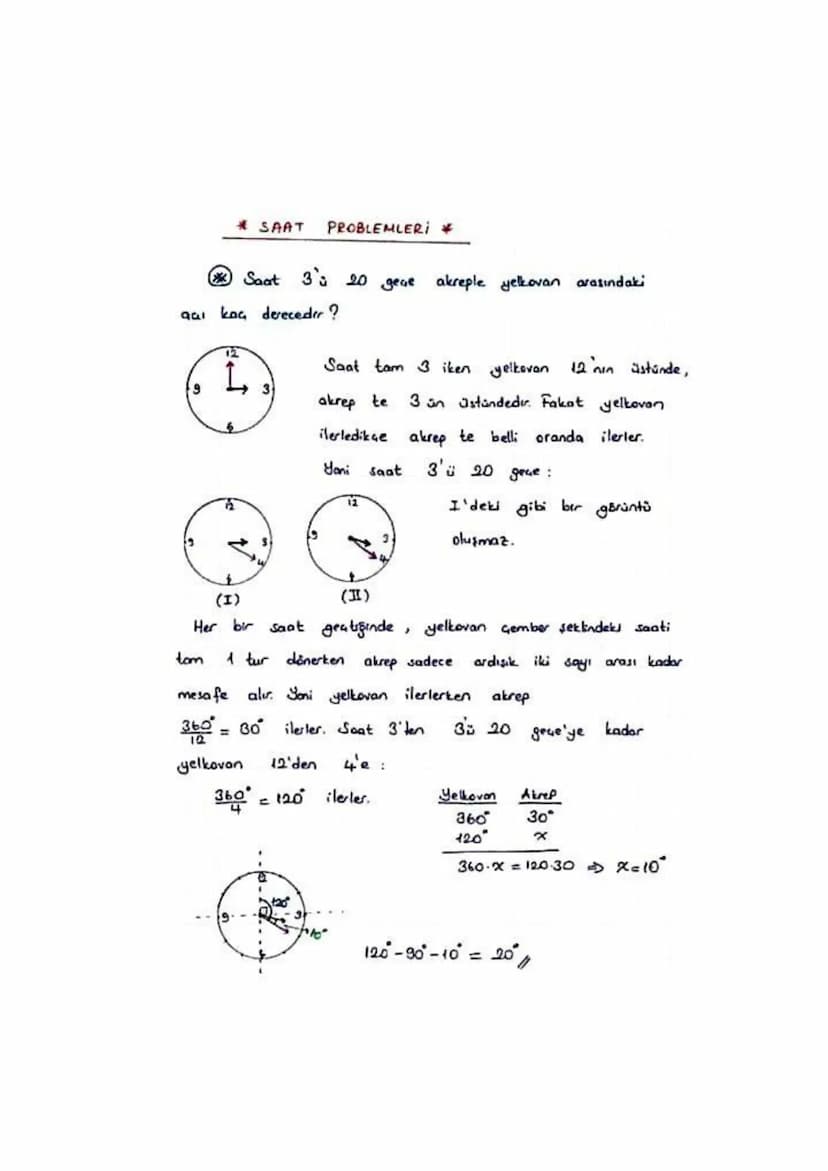 * SAAT PROBLEMLERİ *
* Saat 3'ü 20 geçe akreple yelkovan arasındaki
açı kaç derecedir?
12
9 3
6
Saat tam 3 iken yelkovan 12'nin üstünde,
akrep te 3 ün üstündedir. Fakat yelkovan
ilerledikçe akrep te belli oranda ilerler.
Yani saat 3'ü 20 geçe :
12
9 3
4
6
(I)
12
9 3
4
6
(II)
I'deki gibi bir görüntü
oluşmaz.
Her bir saat geçtiğinde, yelkovan çember şeklindeki saati
tam 1 tur dönerken akrep sadece ardışık iki sayı arası kadar
mesafe alır. Yani yelkovan ilerlerken akrep
360°/12 = 30° ilerler. Saat 3'ten 3'ü 20 geçe'ye kadar
yelkovan 12'den 4'e :
360°/4 = 120° ilerler.
Yelkovan Akrep
360° 30°
120° x
360·x = 120·30 ⇒ x=10°
12
120°
9 3
10°
6
120° - 90° - 10° = 20° //